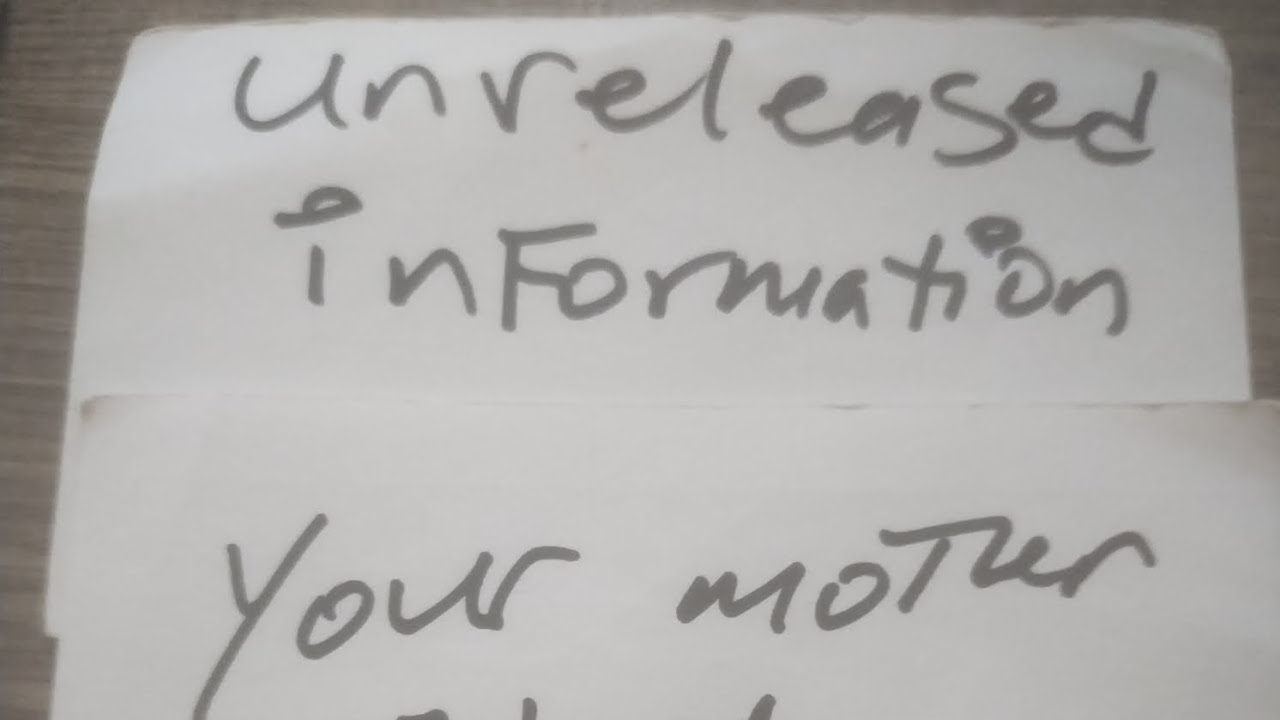 unreleased
inFormation
Your moTher